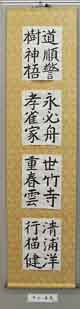 道順警
樹神悟
永必舟
孝雀家
世竹寺
重春雲
清浦洋
行猫健